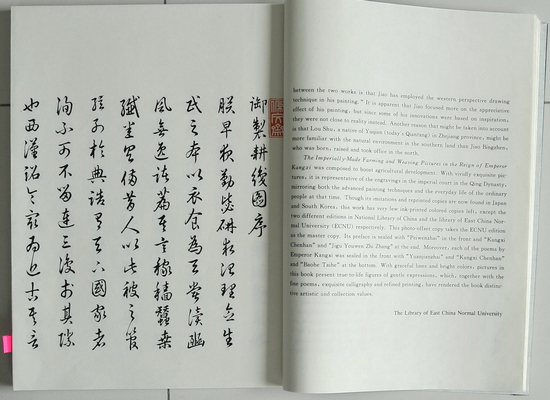 御製耕織圖序
朕早夜勤毖研求治理念生
民之本以衣食為天嘗讀豳
風無逸諸篇其言稼穡蠶桑
纖悉具備昔人以此被之管
絃列於典誥有天下國家者
洵不可不留連三復於其際
也西漢詔令最為近古其言
between the two works is that Jiao has employed the western perspective drawing
technique in his painting." It is apparent that Jiao focused more on the appreciative
effect of his painting, but since some of his innovations were based on inspiration,
they were not close to reality instead. Another reason that might be taken into account
is that Lou Shu, a native of Yuqian (today's Qiantang) in Zhejiang province, might be
more familiar with the natural environment in the southern land than Jiao Bingzhen,
who was born, raised and took office in the north.
The Imperially-Made Farming and Weaving Pictures in the Reign of Emperor
Kangxi was composed to boost agricultural development. With vividly exquisite pic-
tures, it is representative of the engravings in the imperial court in the Qing Dynasty,
mirroring both the advanced painting techniques and the everyday life of the ordinary
people at that time. Though its imitations and reprinted copies are now found in Japan
and South Korea, this work has very few ink-printed colored copies left, except the
two different editions in National Library of China and the library of East China Nor-
mal University (ECNU) respectively. This photo-offset copy takes the ECNU edition
as the master copy. Its preface is sealed with "Peiwenzhai" in the front and "Kangxi
Chenhan" and "Jigu Youwen Zhi Zhang" at the end. Moreover, each of the poems by
Emperor Kangxi was sealed in the front with "Yuanjianzhai" and "Kangxi Chenhan"
and "Baohe Taihe" at the bottom. With graceful lines and bright colors, pictures in
this book present true-to-life figures of gentle expressions, which, together with the
fine poems, exquisite calligraphy and refined printing, have rendered the book distinc-
tive artistic and collection values.
The Library of East China Normal University